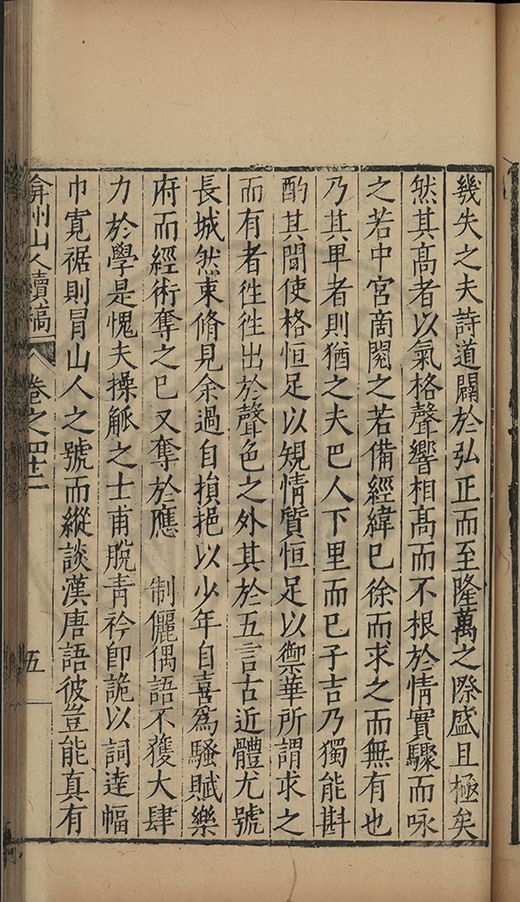 幾失之夫詩道闢於弘正而至隆萬之際盛且極矣
然其高者以氣格聲響相高而不根於情實驟而咏
之若中宮商閱之若備經緯巳徐而求之而無有也
乃其卑者則猶之夫巴人下里而巳子吉乃獨能斟
酌其間使格恒足以規情質恒足以禦華所謂求之
而有者徃徃出於聲色之外其於五言古近體尤號
長城然束脩見余過自損挹以少年自喜爲騷賦樂
府而經術奪之巳又奪於應 制儷偶語不獲大肆
力於學是愧夫操觚之士甫脫青衿即詭以詞達幅
巾寬裾則冐山人之號而縱談漢唐語彼豈能真有
弇州山人續稿 卷之四十二 五